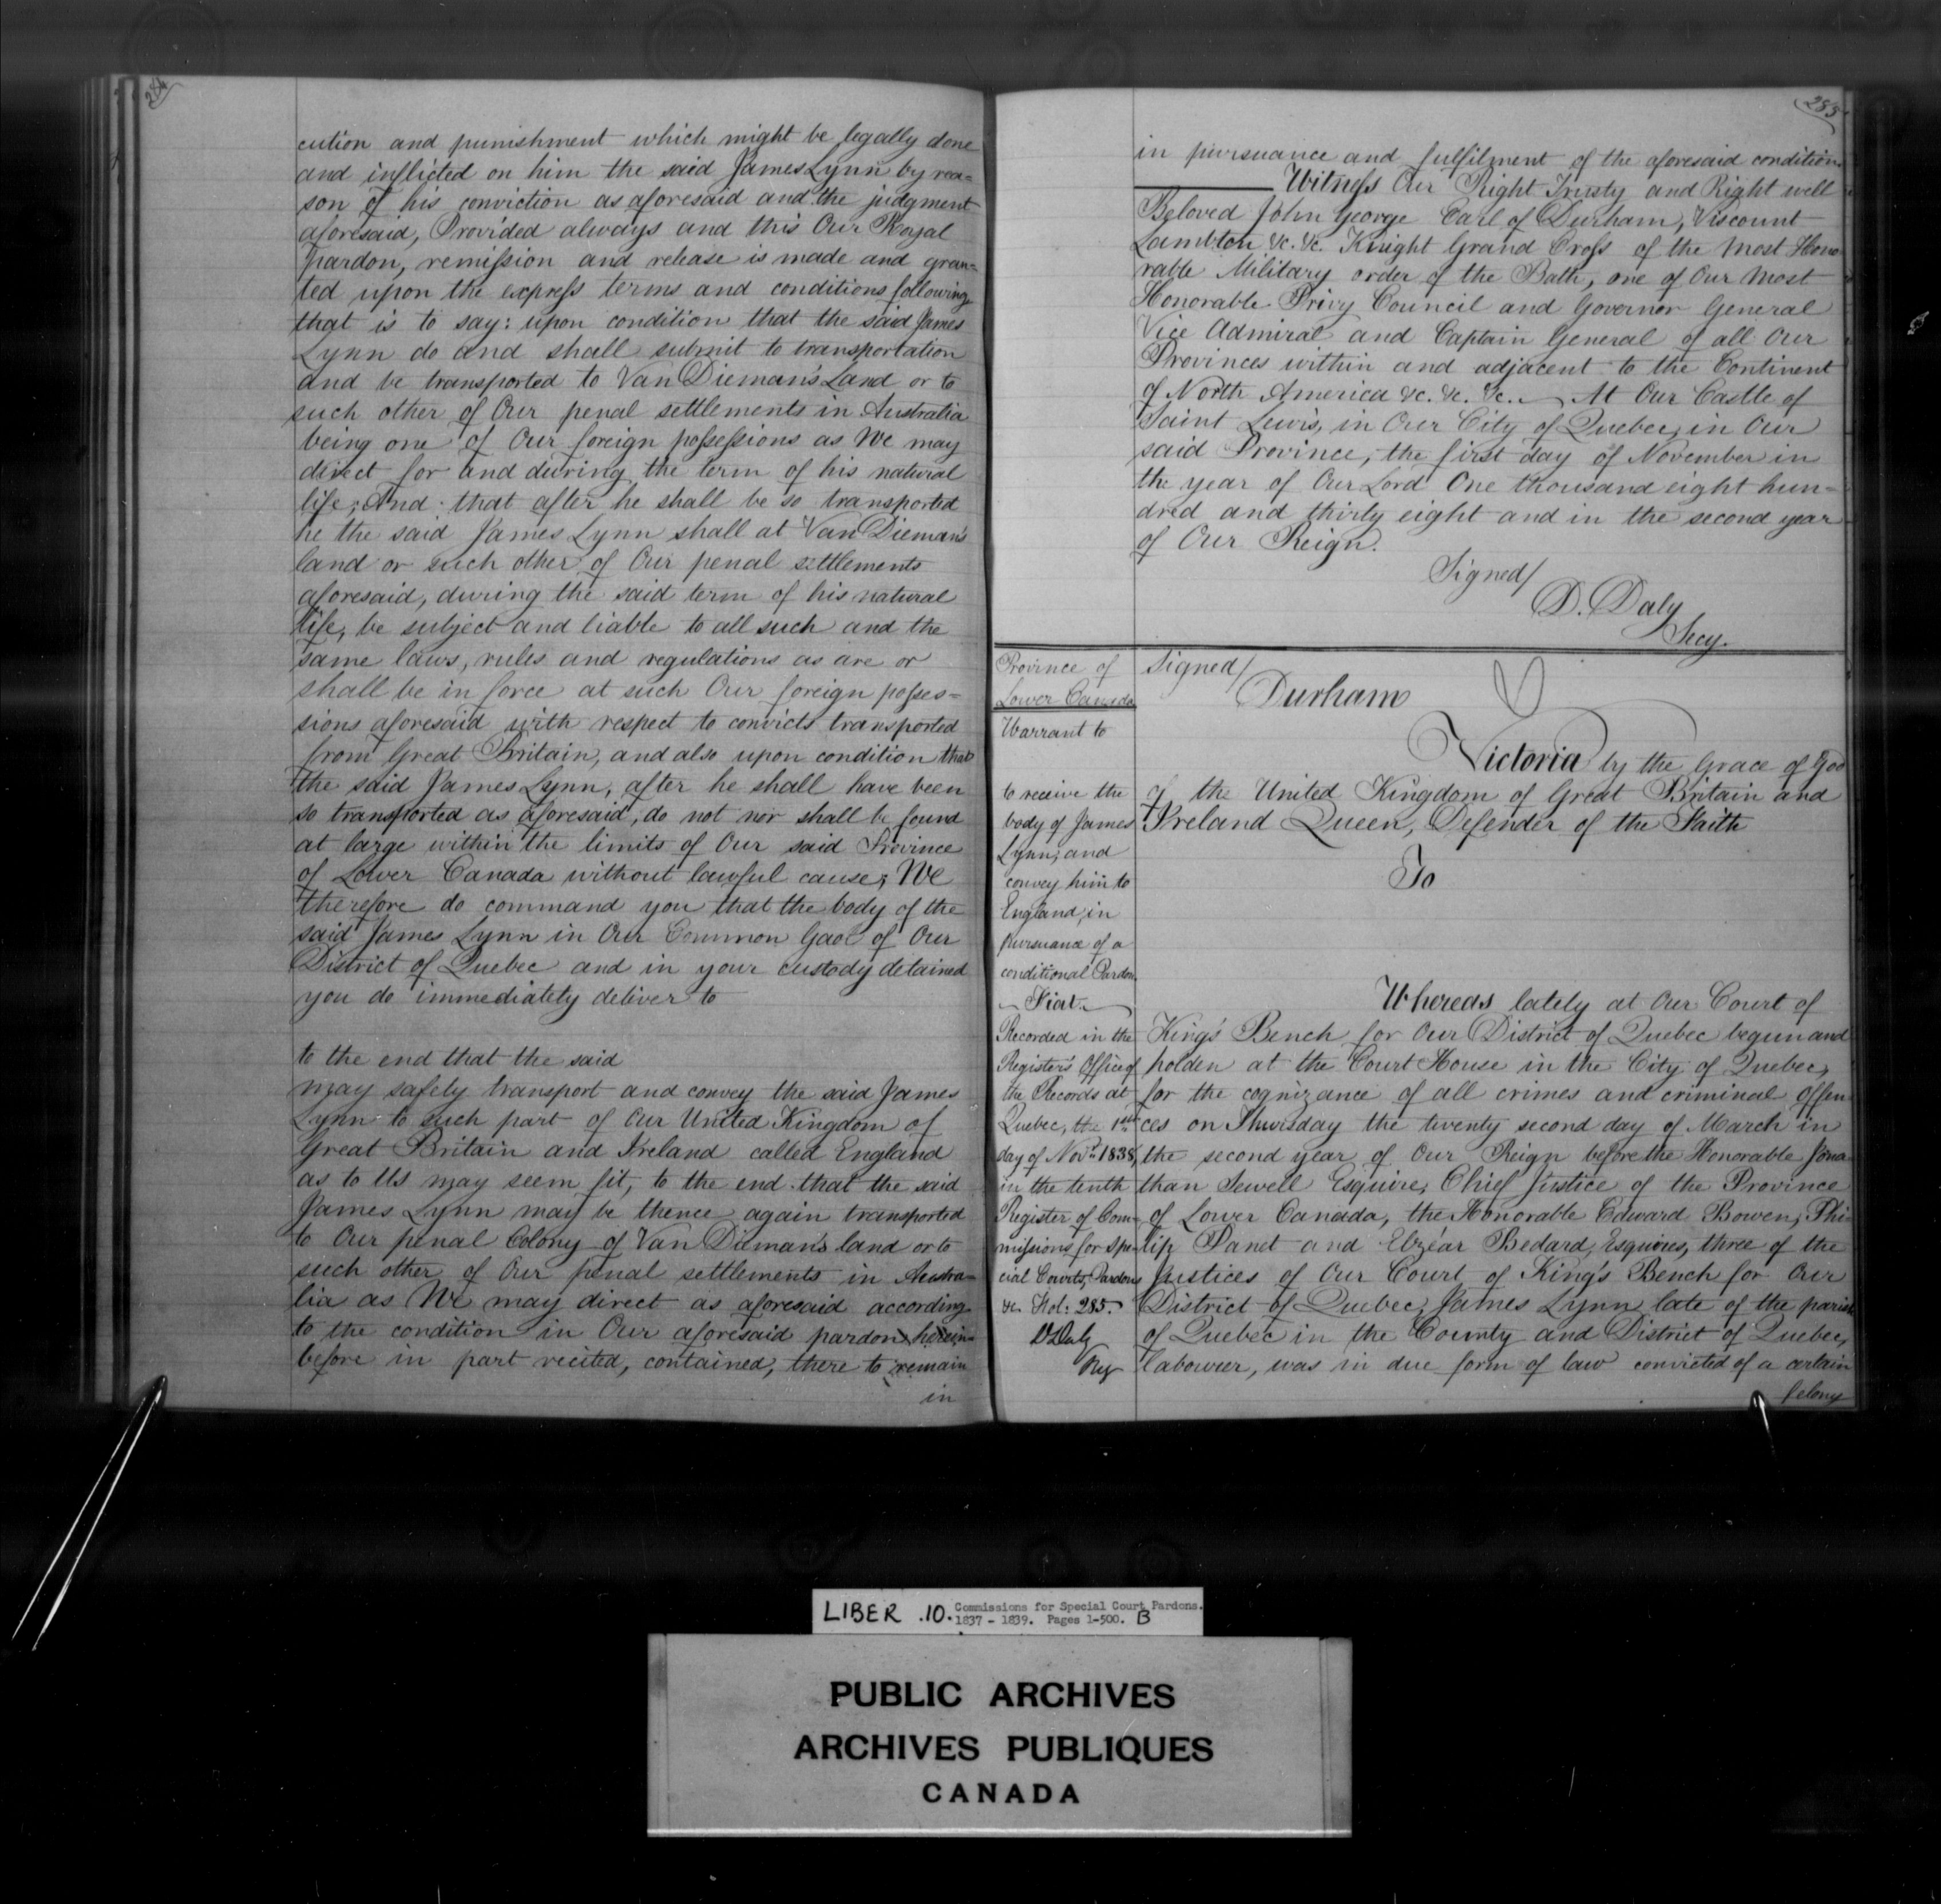 284
cution and punishment which might be legally done
and inflicted on him the said James Lynn by rea=
son of his conviction as aforesaid and the judgment
aforesaid, Provided always and this Our Royal
pardon, remission and release is made and gran=
ted upon the express terms and conditions following
that is to say: upon condition that the said James
Lynn do and shall submit to transportation
and be transported to Van Dieman's Land or to
such other of Our penal settlements in Australia
being one of Our foreign possessions as We may
direct for and during the term of his natural
life; And that after he shall be so transported
he the said James Lynn shall at Van Dieman's
land or such other of Our penal settlements
aforesaid, during the said term of his natural
life, be subject and liable to all such and the
same laws, rules and regulations as are or
shall be in force at such Our foreign posses=
sions aforesaid with respect to convicts transported
from Great Britain, and also upon condition that
the said James Lynn, after he shall have been
so transported as aforesaid, do not nor shall be found
at large within the limits of Our said Province
of Lower Canada without lawful cause; We
therefore do command you that the body of the
said James Lynn in Our Common Gaol of Our
District of Quebec and in your custody detained
you do immediately deliver to
to the end that the said
may safely transport and convey the said James
Lynn to such part of Our United Kingdom of
Great Britain and Ireland called England
as to Us may seem fit, to the end that the said
James Lynn may be thence again transported
to Our penal Colony of Van Dieman's land or to
such other of Our penal settlements in Austra=
lia as We may direct as aforesaid according
to the condition in Our aforesaid pardon herein=
before in part recited, contained, there to remain
in
285
in pursuance and fulfilment of the aforesaid condition.
Witness Our Right Trusty and Right well
Beloved John George Earl of Durham, Viscount
Lambton &c. &c. Knight Grand Cross of the Most Hono
rable Military order of the Bath, one of Our Most
Honorable Privy Council and Governor General
Vice Admiral and Captain General of all Our
Provinces within and adjacent to the Continent
of North America &c. &c. &c. At Our Castle of
Saint Lewis, in Our City of Quebec, in Our
said Province, the first day of November in
the year of Our Lord One thousand eight hun=
dred and thirty eight and in the second year
of Our Reign.
Signed/
D. Daly
Secy.
Province of
Lower Canada
Warrant to
to receive the
body of James
Lynn, and
convey him to
England, in
pursuance of a
conditional Pardon.
Fiat.
Recorded in the
Register's Office of
the Records at
Quebec, the 1st
day of Novr. 1838,
in the tenth
Register of Com=
missions for Spe=
cial Courts, Pardons
&c. Fol: 285.
D Daly
Reg
Signed/
Durham
Victoria by the Grace of God
of the United Kingdom of Great Britain and
Ireland Queen, Defender of the Faith
To
Whereas lately at Our Court of
King's Bench for Our District of Quebec begun and
holden at the Court House in the City of Quebec,
for the cognizance of all crimes and criminal Offen
ces on Thursday the twenty second day of March in
the second year of Our Reign before the Honorable Jona
than Sewell Esquire, Chief Justice of the Province
of Lower Canada, the Honorable Edward Bowen, Phi=
lip Panet and Elzéar Bedard, Esquires, three of the
Justices of Our Court of King's Bench for Our
District of Quebec, James Lynn late of the parish
of Quebec in the County and District of Quebec,
labourer, was in due form of law convicted of a certain
felony
LIBER .10. Commissions for Special Court Pardons.
1837 - 1839. Pages 1-500. B
PUBLIC ARCHIVES
ARCHIVES PUBLIQUES
CANADA